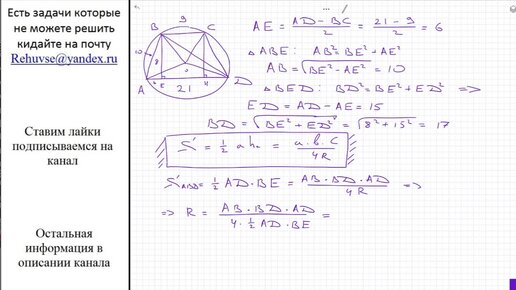 Есть задачи которые
не можете решить
кидайте на почту
Rehuvse@yandex.ru
Ставим лайки
подписываемся на
канал
Остальная
информация в
описании канала
9
B C
10 8
O
A E H D
21
AE = (AD - BC)/2 = (21 - 9)/2 = 6
△ABE: AB² = BE² + AE²
AB = √(BE² - AE²) = 10
△BED: BD² = BE² + ED² =>
ED = AD - AE = 15
BD = √(BE² + ED²) = √(8² + 15²) = 17
S = 1/2 a hₐ = a·b·c/4R
S_ABD = 1/2 AD · BE = AB · BD · AD/4R =>
=> R = AB · BD · AD/(4 · 1/2 AD · BE) =